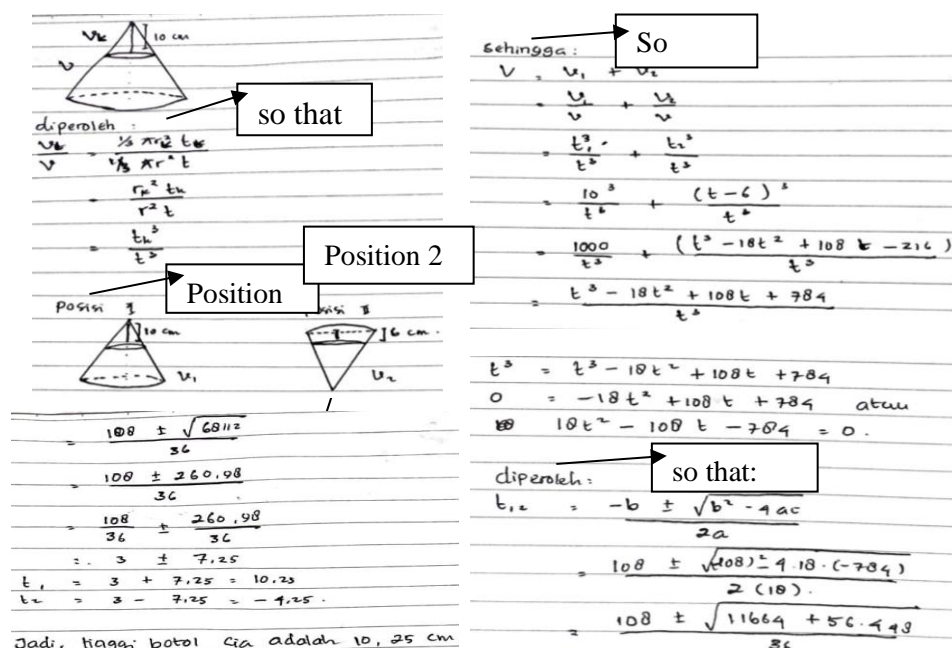 Vk
10 cm
V
so that
diperoleh :
Vk/V = ⅓ πrk² tk / ⅓ πr² t
= rk² tk / r² t
= tk³ / t³
Position 2
Position
Posisi I
Posisi II
10 cm
6 cm.
V₁
V₂
= 108 ± √68112 / 36
= 108 ± 260,98 / 36
= 108/36 ± 260,98/36
= 3 ± 7,25
t₁ = 3 + 7,25 = 10,25
t₂ = 3 - 7,25 = -4,25.
Jadi, tinggi botol Cia adalah 10, 25 cm
So
Sehingga :
V = V₁ + V₂
= V₁/V + V₂/V
= t₁³/t³ + t₂³/t³
= 10³/t³ + (t-6)³/t³
= 1000/t³ + (t³ - 18t² + 108t - 216)/t³
= t³ - 18t² + 108t + 784 / t³
t³ = t³ - 18t² + 108t + 784
0 = -18t² + 108t + 784 atau
18t² - 108t - 784 = 0.
so that:
diperoleh :
t₁,₂ = -b ± √b² - 4ac / 2a
= 108 ± √(108)² - 4.18.(-784) / 2 (18).
= 108 ± √11664 + 56.448 / 36